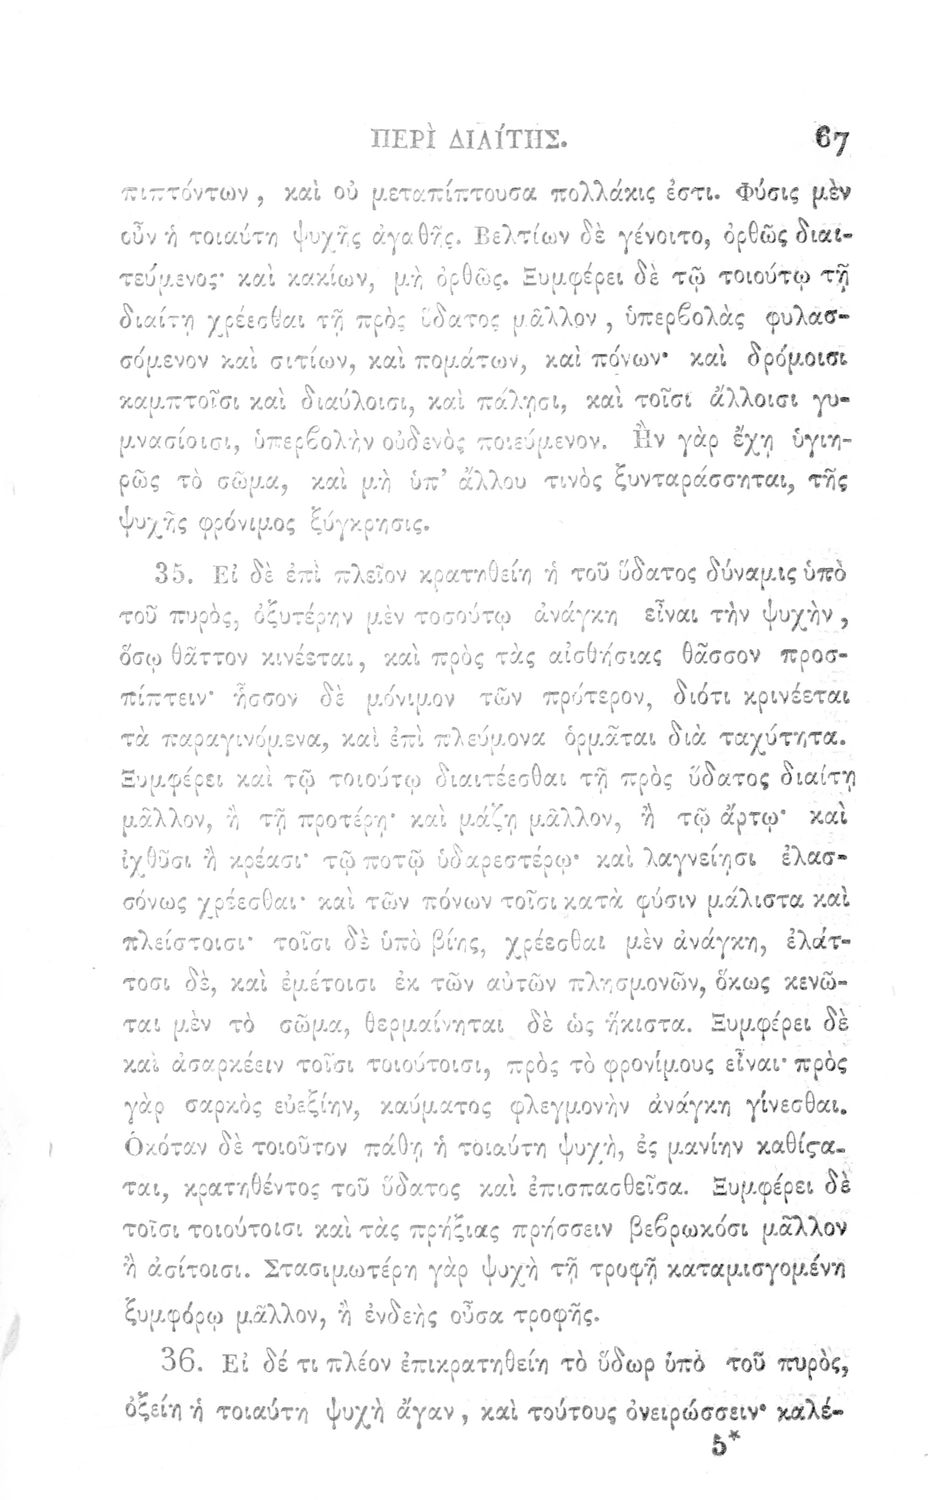 ΠΕΡῚ ΔΙΑΊΤΗΣ. 67
πιπτόντων, καὶ οὐ μεταπίπτουσα πολλάκις ἐστι. Φύσις μὲν
οὖν ἡ τοιαύτη ψυχῆς ἀγαθῆς. Βελτίων δὲ γένοιτο, ὀρθῶς διαι-
τεύμενος· καὶ κακίων, μὴ ὀρθῶς. Ξυμφέρει δὲ τῷ τοιούτῳ τῇ
διαίτη χρέεσθαι τῇ πρὸς ὕδατος μᾶλλον, ὑπερϐολὰς φυλασ-
σόμενον καὶ σιτίων, καὶ πομάτων, καὶ πόνων· καὶ δρόμοισι
καμπτοῖσι καὶ διαύλοισι, καὶ πάλησι, καὶ τοῖσι ἄλλοισι γυ-
μνασίοισι, ὑπερϐολὴν οὐδενὸς ποιεύμενον. Ἢν γὰρ ἔχῃ ὑγιη-
ρῶς τὸ σῶμα, καὶ μὴ ὑπ' ἄλλου τινὸς ξυνταράσσηται, τῆς
ψυχῆς φρόνιμος ξύγκρησις.
35. Εἰ δὲ ἐπὶ πλεῖον κρατηθείη ἡ τοῦ ὕδατος δύναμις ὑπὸ
τοῦ πυρὸς, ὀξυτέρην μὲν τοσούτῳ ἀνάγκη εἶναι τὴν ψυχὴν,
ὅσῳ θᾶττον κινέεται, καὶ πρὸς τὰς αἰσθήσιας θᾶσσον προσ-
πίπτειν· ἧσσον δὲ μόνιμον τῶν πρότερον, διότι κρινέεται
τὰ παραγινόμενα, καὶ ἐπὶ πλεύμονα ὁρμᾶται διὰ ταχύτητα.
Ξυμφέρει καὶ τῷ τοιούτῳ διαιτέεσθαι τῇ πρὸς ὕδατος διαίτῃ
μᾶλλον, ἢ τῇ προτέρῃ· καὶ μάζῃ μᾶλλον, ἢ τῷ ἄρτῳ· καὶ
ἰχθῦσι ἢ κρέασι· τῷ ποτῷ ὑδαρεστέρῳ· καὶ λαγνείησι ἐλασ-
σόνως χρέεσθαι· καὶ τῶν πόνων τοῖσι κατὰ φύσιν μάλιστα καὶ
πλείστοισι· τοῖσι δὲ ὑπὸ βίης, χρέεσθαι μὲν ἀνάγκη, ἐλάτ-
τοσι δὲ, καὶ ἐμέτοισι ἐκ τῶν αὐτῶν πλησμονῶν, ὅκως κενῶ-
ται μὲν τὸ σῶμα, θερμαίνηται δὲ ὡς ἥκιστα. Ξυμφέρει δὲ
καὶ ἀσαρκέειν τοῖσι τοιούτοισι, πρὸς τὸ φρονίμους εἶναι· πρὸς
γὰρ σαρκὸς εὐεξίην, καύματος φλεγμονὴν ἀνάγκη γίνεσθαι.
Ὁκόταν δὲ τοιοῦτον πάθῃ ἡ τοιαύτη ψυχὴ, ἐς μανίην καθίϛα-
ται, κρατηθέντος τοῦ ὕδατος καὶ ἐπισπασθεῖσα. Ξυμφέρει δὲ
τοῖσι τοιούτοισι καὶ τὰς πρήξιας πρήσσειν βεϐρωκόσι μᾶλλον
ἢ ἀσίτοισι. Στασιμωτέρη γὰρ ψυχὴ τῇ τροφῇ καταμισγομένη
ξυμφόρῳ μᾶλλον, ἢ ἐνδεὴς οὖσα τροφῆς.
36. Εἰ δέ τι πλέον ἐπικρατηθείη τὸ ὕδωρ ὑπὸ τοῦ πυρὸς,
ὀξείη ἡ τοιαύτη ψυχὴ ἄγαν, καὶ τούτους ὀνειρώσσειν· καλέ-
5*